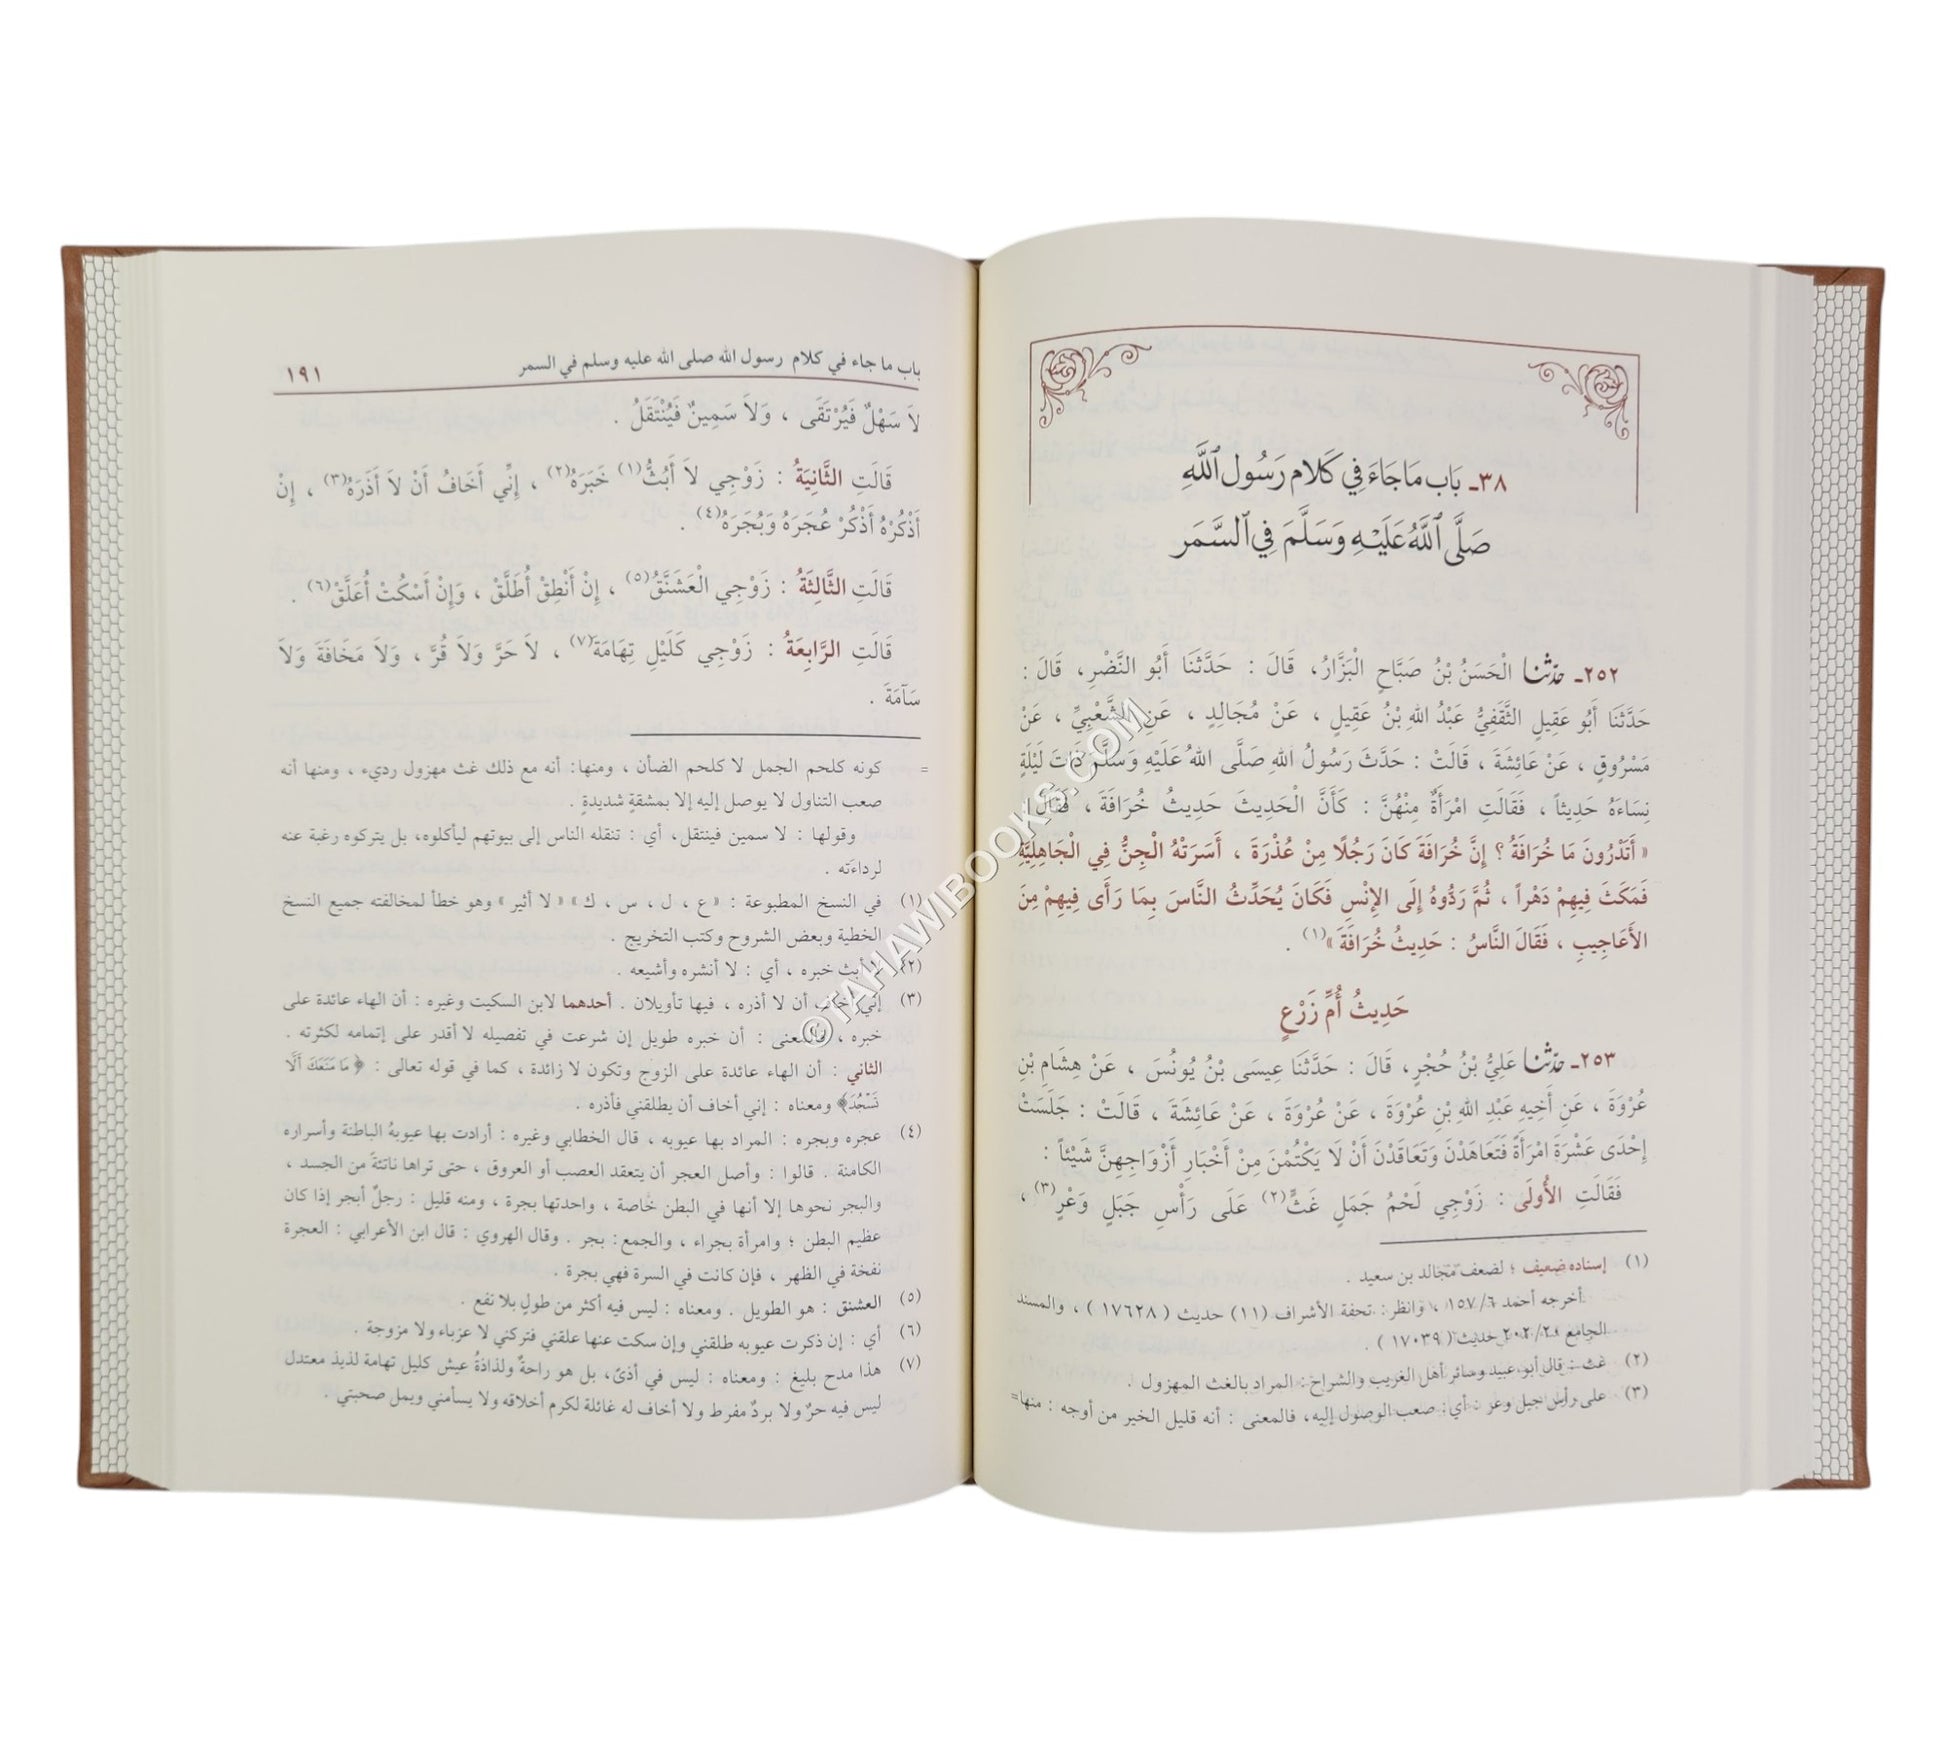 ٣٨ـ بَاب مَا جَاءَ فِي كَلام رَسُول ٱللَّهِ
صَلَّى ٱللَّهُ عَلَيْهِ وَسَلَّمَ فِي ٱلسَّمَر
٢٥٢ـ حدّثنا الْحَسَنُ بْنُ صَبَّاحٍ الْبَزَّارُ، قَالَ : حَدَّثَنَا أَبُو النَّضْرِ، قَالَ :
حَدَّثَنَا أَبُو عَقِيلٍ الثَّقَفِيُّ عَبْدُ اللهِ بْنُ عَقِيلٍ ، عَنْ مُجَالِدٍ ، عَنِ الشَّعْبِيِّ ، عَنْ
مَسْرُوقٍ ، عَنْ عَائِشَةَ ، قَالَتْ : حَدَّثَ رَسُولُ اللهِ صَلَّى اللهُ عَلَيْهِ وَسَلَّمَ ذَاتَ لَيْلَةٍ
نِسَاءَهُ حَدِيثاً ، فَقَالَتِ امْرَأَةٌ مِنْهُنَّ : كَأَنَّ الْحَدِيثَ حَدِيثُ خُرَافَةَ ، فَقَالَ :
« أَتَدْرُونَ مَا خُرَافَةُ ؟ إِنَّ خُرَافَةَ كَانَ رَجُلًا مِنْ عُذْرَةَ ، أَسَرَتْهُ الْجِنُّ فِي الْجَاهِلِيَّةِ
فَمَكَثَ فِيهِمْ دَهْراً ، ثُمَّ رَدُّوهُ إِلَى الإِنْسِ فَكَانَ يُحَدِّثُ النَّاسَ بِمَا رَأَى فِيهِمْ مِنَ
الأَعَاجِيبِ ، فَقَالَ النَّاسُ : حَدِيثُ خُرَافَةَ »(١) .
حَدِيثُ أُمِّ زَرْعٍ
٢٥٣ـ حدّثنا عَلِيُّ بْنُ حُجْرٍ، قَالَ : حَدَّثَنَا عِيسَى بْنُ يُونُسَ ، عَنْ هِشَامِ بْنِ
عُرْوَةَ ، عَنِ أَخِيهِ عَبْدِ اللهِ بْنِ عُرْوَةَ ، عَنْ عُرْوَةَ ، عَنْ عَائِشَةَ ، قَالَتْ : جَلَسَتْ
إِحْدَى عَشْرَةَ امْرَأَةً فَتَعَاهَدْنَ وَتَعَاقَدْنَ أَنْ لَا يَكْتُمْنَ مِنْ أَخْبَارِ أَزْوَاجِهِنَّ شَيْئاً :
فَقَالَتِ الأُولَى : زَوْجِي لَحْمُ جَمَلٍ غَثٍّ(٢) عَلَى رَأْسِ جَبَلٍ وَعْرٍ(٣) ،
(١) إسناده ضعيف ؛ لضعف مجالد بن سعيد .
أخرجه أحمد ١٥٧/٦ ، وانظر : تحفة الأشراف (١١) حديث ( ١٧٦٢٨ ) ، والمسند
الجامع ٢٠٢/٢٠ حديث ( ١٧٠٣٩ ) .
(٢) غث : قال أبو عبيد وسائر أهل الغريب والشراح : المراد بالغث المهزول .
(٣) على رأس جبل وعر : أي : صعب الوصول إليه، فالمعنى : أنه قليل الخير من أوجه : منها=
باب ما جاء في كلام رسول الله صلى الله عليه وسلم في السمر ١٩١
لاَ سَهْلٌ فَيُرْتَقَى ، وَلاَ سَمِينٌ فَيُنْتَقَلُ .
قَالَتِ الثَّانِيَةُ : زَوْجِي لاَ أَبُثُّ(١) خَبَرَهُ(٢) ، إِنِّي أَخَافُ أَنْ لاَ أَذَرَهُ(٣) ، إِنْ
أَذْكُرْهُ أَذْكُرْ عُجَرَهُ وَبُجَرَهُ(٤) .
قَالَتِ الثَّالِثَةُ : زَوْجِي الْعَشَنَّقُ(٥) ، إِنْ أَنْطِقْ أُطَلَّقْ ، وَإِنْ أَسْكُتْ أُعَلَّقْ(٦) .
قَالَتِ الرَّابِعَةُ : زَوْجِي كَلَيْلِ تِهَامَةَ(٧) ، لاَ حَرَّ وَلاَ قُرَّ ، وَلاَ مَخَافَةَ وَلاَ
سَآمَةَ .
= كونه كلحم الجمل لا كلحم الضأن ، ومنها: أنه مع ذلك غث مهزول رديء ، ومنها أنه
صعب التناول لا يوصل إليه إلا بمشقةٍ شديدةٍ .
وقولها : لا سمين فينتقل، أي : تنقله الناس إلى بيوتهم ليأكلوه، بل يتركوه رغبة عنه
لرداءته .
(١) في النسخ المطبوعة : « ع ، ل ، س ، ك » « لا أثير » وهو خطأ لمخالفته جميع النسخ
الخطية وبعض الشروح وكتب التخريج .
(٢) لا أبث خبره ، أي : لا أنشره وأشيعه .
(٣) إني أخاف أن لا أذره ، فيها تأويلان . أحدهما لابن السكيت وغيره : أن الهاء عائدة على
خبره ، فالمعنى : أن خبره طويل إن شرعت في تفصيله لا أقدر على إتمامه لكثرته .
الثاني : أن الهاء عائدة على الزوج وتكون لا زائدة ، كما في قوله تعالى : ﴿ مَا مَنَعَكَ أَلَّا
تَسْجُدَ﴾ ومعناه : إني أخاف أن يطلقني فأذره .
(٤) عجره وبجره : المراد بها عيوبه ، قال الخطابي وغيره : أرادت بها عيوبهُ الباطنة وأسراره
الكامنة . قالوا : وأصل العجر أن يتعقد العصب أو العروق ، حتى تراها ناتئةً من الجسد ،
والبجر نحوها إلا أنها في البطن خاصة ، واحدتها بجرة ، ومنه قليل : رجلٌ أبجر إذا كان
عظيم البطن ؛ وامرأة بجراء ، والجمع: بجر . وقال الهروي : قال ابن الأعرابي : العجرة
نفخة في الظهر ، فإن كانت في السرة فهي بجرة .
(٥) العشنق : هو الطويل . ومعناه : ليس فيه أكثر من طولٍ بلا نفع .
(٦) أي : إن ذكرت عيوبه طلقني وإن سكت عنها علقني فتركني لا عزباء ولا مزوجة .
(٧) هذا مدح بليغ : ومعناه : ليس في أذىً، بل هو راحةٌ ولذاذةُ عيش كليل تهامة لذيذ معتدل
ليس فيه حرٌ ولا بردٌ مفرط ولا أخاف له غائلة لكرم أخلاقه ولا يسأمني ويمل صحبتي .
©TAHAWIBOOKS.COM